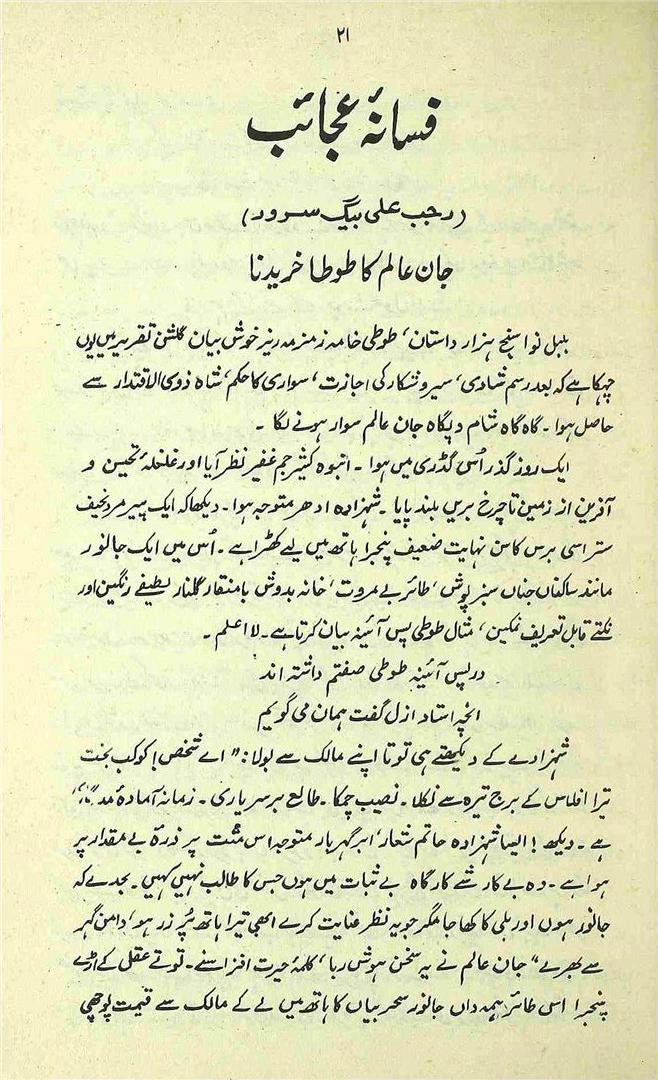 ۲۱
فسانۂ عجائب
(رجب علی بیگ سرور)
جان عالم کا طوطا خریدنا
بلبل نواسنج ہزار داستان، طوطی خامہ زمزمہ ریز خوش بیان گلشن تقریر میں یوں
چہکا ہے کہ بعد رسم شادی، سیر و شکار کی اجازت، سواری کا حکم، شاہ ذوی الاقتدار سے
حاصل ہوا۔ گاہ گاہ شام و پگاہ جان عالم سوار ہونے لگا۔
ایک روز گذر اُس گذری میں ہوا۔ انبوہ کثیر جم غفیر نظر آیا اور غلغلۂ تحسین و
آفرین از زمین تا چرخ بریں بلند پایا۔ شہزادہ ادھر متوجہ ہوا۔ دیکھا کہ ایک پیر مرد نحیف
ستر اسی برس کا سن نہایت ضعیف پنجرا ہاتھ میں لیے کھڑا ہے۔ اُس میں ایک جانور
مانند ساکنان جناں سبز پوش، طائر بے مروت، خانہ بدوش با منقار گلنار لطیفے رنگین اور
نکتے قابل تعریف نمکین، مثال طوطی پس آئینہ بیان کرتا ہے۔ لااعلم۔
در پس آئینہ طوطی صفتم داشتہ اند
انچہ استاد ازل گفت ہمان می گویم
شہزادے کے دیکھتے ہی توتا اپنے مالک سے بولا: "اے شخص! کوکب بخت
تیرا افلاس کے برج تیرہ سے نکلا۔ نصیب چمکا۔ طالع برسریاری۔ زمانہ آمادۂ
ہے۔ دیکھ! ایسا شہزادہ حاتم شعار، ابر گہر بار متوجہ اس مشت پر ذرۂ بے مقدار پر
ہوا ہے۔ وہ بے کار شے کارگاہ بے ثبات میں ہوں جس کا طالب نہیں کہیں۔ بجدے کہ
جانور ہوں اور بلی کا کھاجا مگر جو یہ نظر عنایت کرے ابھی تیرا ہاتھ پُر زر ہو، دامن گہر
سے بھرے" جان عالم نے یہ سخن ہوش ربا، کلمۂ حیرت افزا سنے۔ توتے عقل کے اڑے
پنجرا اس طائر ہمہ داں جانور سحر بیاں کا ہاتھ میں لے کے مالک سے قیمت پوچھی